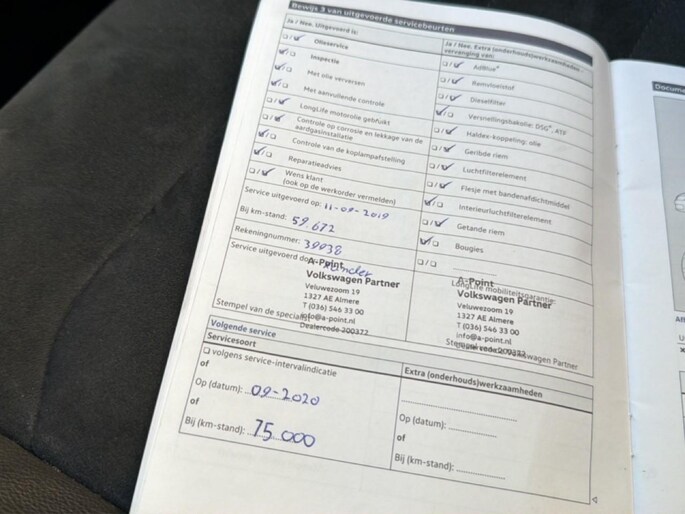 Bewijs 3 van uitgevoerde servicebeurten
Ja / Nee. Uitgevoerd is:
Olieservice
Inspectie
Met olie verversen
Met aanvullende controle
LongLife motorolie gebruikt
Controle op corrosie en lekkage van de
aardgasinstallatie
Controle van de koplampafstelling
Reparatieadvies
Wens klant
(ook op de werkorder vermelden)
Service uitgevoerd op: 11-09-2019
Bij km-stand: 59.672
Rekeningnummer: 39038
Service uitgevoerd door:
A-Point
Volkswagen Partner
Veluwezoom 19
1327 AE Almere
T (036) 546 33 00
info@a-point.nl
Dealercode 200372
Stempel van de specialist
Ja / Nee. Extra (onderhouds)werkzaamheden
vervanging van:
AdBlue®
Remvloeistof
Dieselfilter
Versnellingsbakolie: DSG®, ATF
Haldex-koppeling: olie
Geribde riem
Luchtfilterelement
Flesje met bandenafdichtmiddel
Interieurluchtfilterelement
Getande riem
Bougies
LongLife mobiliteitsgarantie:
A-Point
Volkswagen Partner
Veluwezoom 19
1327 AE Almere
T (036) 546 33 00
info@a-point.nl
Dealercode 200372
Stempel Volkswagen Partner
Volgende service
Servicesoort
volgens service-intervalindicatie
of
Op (datum): 09-2020
of
Bij (km-stand): 75.000
Extra (onderhouds)werkzaamheden
Op (datum):
of
Bij (km-stand):
Docume